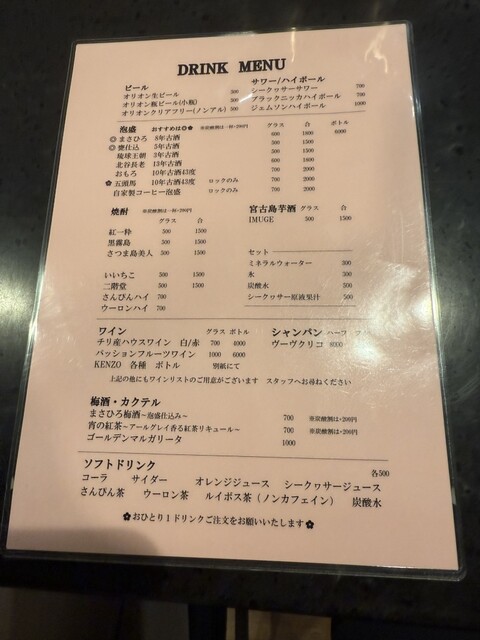 DRINK MENU
ビール
オリオン生ビール 500
オリオン瓶ビール(小瓶) 500
オリオンクリアフリー(ノンアル) 500
サワー/ハイボール
シークヮサーサワー 700
ブラックニッカハイボール 700
ジェムソンハイボール 1000
泡盛 おすすめは◎✿ ※炭酸割は一杯+200円 グラス 合 ボトル
◎まさひろ 8年古酒 600 1800 6000
◎甕仕込 5年古酒 600 1800
琉球王朝 3年古酒 600 1800
北谷長老 13年古酒 700 2000
おもろ 10年古酒43度 700 2000
✿五頭馬 10年古酒43度 ロックのみ 700 2000
自家製コーヒー泡盛 ロックのみ 700 2000
焼酎 ※炭酸割は一杯+200円
グラス 合
紅一粋 500 1500
黒霧島 500 1500
さつま島美人 500 1500
いいちこ 500 1500
二階堂 500 1500
さんぴんハイ 700
ウーロンハイ 700
宮古島芋酒 グラス 合
IMUGE 500 1500
セット
ミネラルウォーター 300
氷 300
炭酸水 500
シークヮサー原液果汁 500
ワイン グラス ボトル
チリ産ハウスワイン 白/赤 700 4000
パッションフルーツワイン 1000 6000
KENZO 各種 ボトル 別紙にて
シャンパン ハーフ
ヴーヴクリコ 8000
上記の他にもワインリストのご用意がございます スタッフへお尋ねください
梅酒・カクテル
まさひろ梅酒~泡盛仕込み~ 700 ※炭酸割は+200円
宵の紅茶~アールグレイ香る紅茶リキュール~ 700 ※炭酸割は+200円
ゴールデンマルガリータ 1000
ソフトドリンク 各500
コーラ サイダー オレンジジュース シークヮサージュース
さんぴん茶 ウーロン茶 ルイボス茶(ノンカフェイン) 炭酸水
✿おひとり1ドリンクご注文をお願いいたします✿